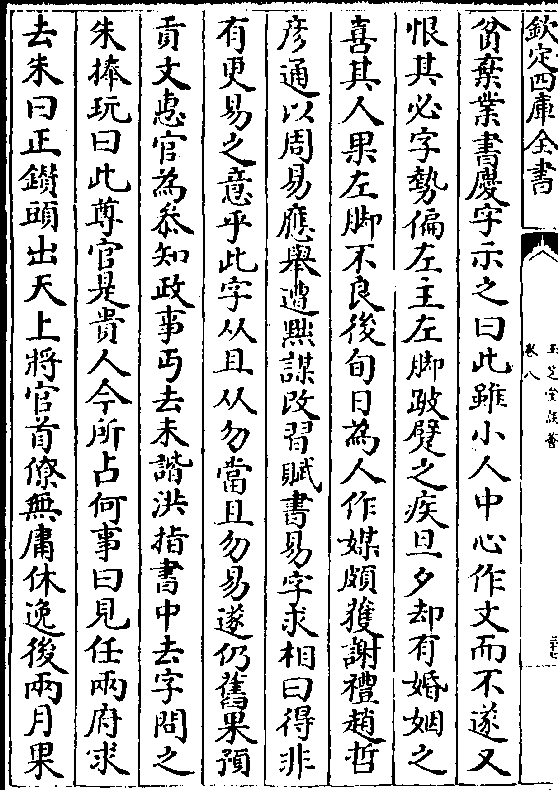 欽定四庫全書
玉芝堂談薈
卷八
貧棄業書慶字示之曰此雖小人中心作文而不遂又
恨其必字勢偏左主左脚跛躄之疾旦夕却有婚姻之
喜其人果左脚不良後旬日為人作媒頗獲謝禮趙哲
彥通以周易應舉遭黜謀改習賦書易字求相曰得非
有更易之意乎此字从且从勿當且勿易遂仍舊果預
貢文惠官為叅知政事丐去未諧洪指書中去字問之
朱捧玩曰此尊官是貴人今所占何事曰見任兩府求
去朱曰正鑚頭出天上將官首僚無庸休逸後兩月果